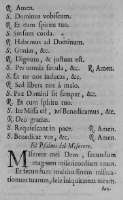 ℟. Amen.
℣. Dominus vobiscum.
℟. Et cum spiritu tuo.
℣. Sursum corda.
℟. Habemus ad Dominum.
℣. Gratias, &c.
℟. Dignum, & justum est.
℣. Per omnia secula, &c. ℟. Amen.
℣. Et ne nos inducas, &c.
℟. Sed libera nos à malo.
℣. Pax Domini sit semper, &c.
℟. Et cum spiritu tuo.
℣. Ite Missa est, vel Benedicamus, &c.
℟. Deo gratias.
℣. Requiescant in pace. ℟. Amen.
℣. Benedicat vos, &c. ℟. Amen.
Miserere.
Miserere mei Deus, secundum
magnam misericordiam tuam.
Et secundum multitudinem misera-
tionum tuarum, dele iniquitatem